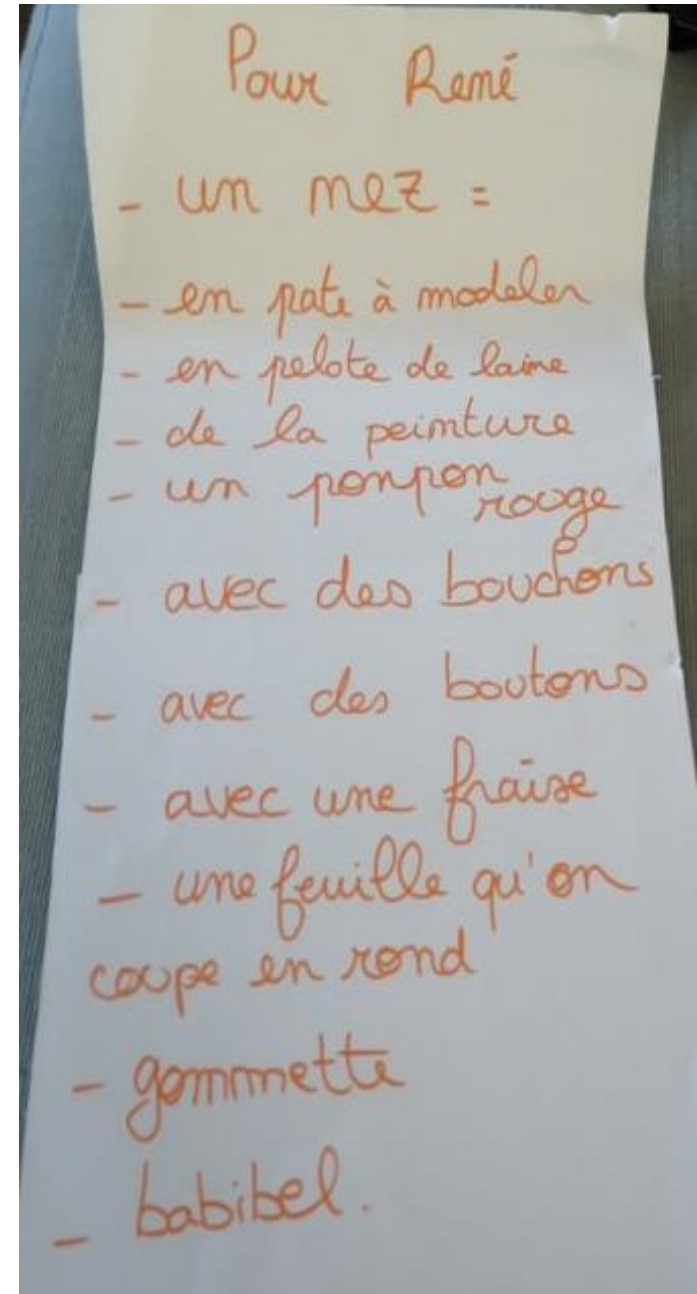 Pour René
- un nez =
- en pate à modeler
- en pelote de laine
- de la peinture
- un ponpon
rouge
- avec des bouchons
- avec des boutons
- avec une fraise
- une feuille qu'on
coupe en rond
- gommette
- babibel.